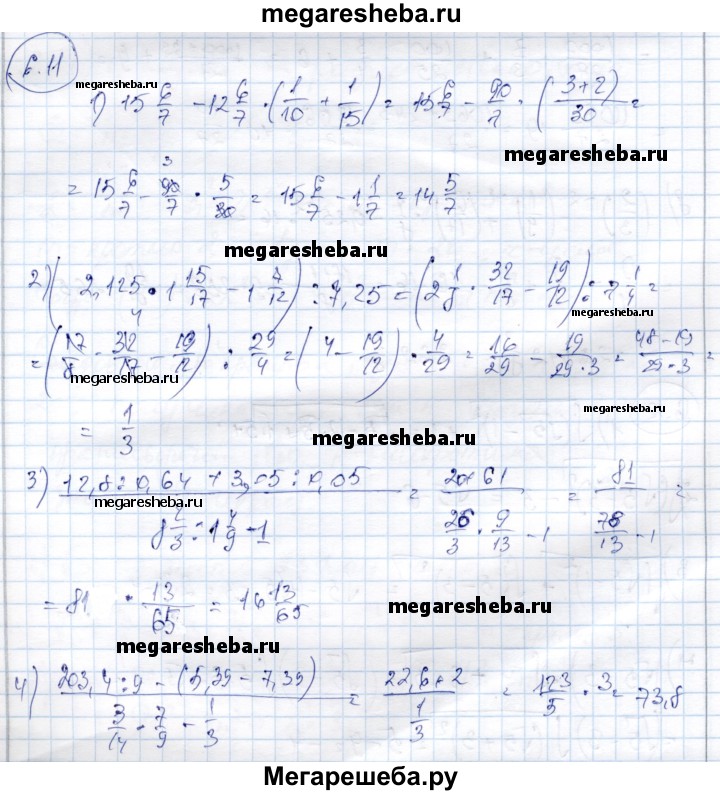 megaresheba.ru
6.11
megaresheba.ru
1) 15 6/7 - 12 6/7 · (1/10 + 1/15) = 15 6/7 - 90/7 · (3+2)/30 =
megaresheba.ru
3
= 15 6/7 - 90/7 · 5/30 = 15 6/7 - 1 1/7 = 14 5/7
megaresheba.ru
2) (2,125 · 1 15/17 - 1 7/12) : 7,25 = (2 1/8 · 32/17 - 19/12) : 7 1/4 =
megaresheba.ru
4
= (17/8 · 32/17 - 19/12) : 29/4 = (4 - 19/12) · 4/29 = 16/29 - 19/29·3 = 48-19/29·3 =
megaresheba.ru
megaresheba.ru
= 1/3
megaresheba.ru
3) 12,8 : 0,64 + 3,05 : 0,05 / 8 2/3 : 1 4/9 - 1 = 20+61 / 26/3 · 9/13 - 1 = 81 / 78/13 - 1 =
megaresheba.ru
= 81 · 13/65 = 16 13/65
megaresheba.ru
megaresheba.ru
4) 203,4 : 9 - (5,39 - 7,39) / 3/14 · 7/9 - 1/3 = 22,6+2 / 1/3 = 123/5 · 3 = 73,8
Мегарешеба.ру